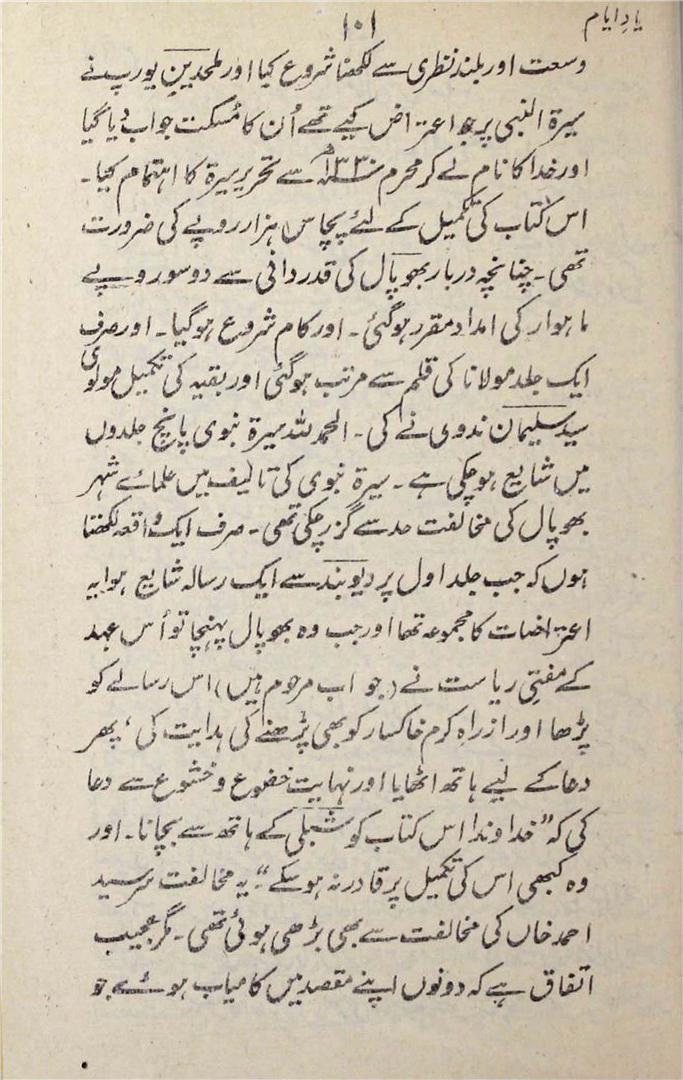 یادِ ایام
۱۰۱
وسعت اور بلند نظری سے لکھنا شروع کیا اور ملحدینِ یورپ نے
سیرۃ النبی پر جو اعتراض کیے تھے اُن کا مُسکت جواب دیا گیا
اور خدا کا نام لے کر محرم ۱۳۳۰ھ سے تحریر سیرۃ کا اہتمام کیا۔
اس کتاب کی تکمیل کے لئے پچاس ہزار روپے کی ضرورت
تھی۔ چنانچہ دربار بھوپال کی قدردانی سے دو سو روپے
ماہوار کی امداد مقرر ہوگئی۔ اور کام شروع ہوگیا۔ اور صرف
ایک جلد مولانا کی قلم سے مرتب ہوگئی اور بقیہ کی تکمیل مولوی
سید سلیمان ندوی نے کی۔ الحمد للہ سیرۃ نبوی پانچ جلدوں
میں شایع ہوچکی ہے۔ سیرۃ نبوی کی تالیف میں علمائے شہر
بھوپال کی مخالفت حد سے گزر چکی تھی۔ صرف ایک واقعہ لکھتا
ہوں کہ جب جلد اول پر دیوبند سے ایک رسالہ شایع ہوا یہ
اعتراضات کا مجموعہ تھا اور جب وہ بھوپال پہنچا تو اُس عہد
کے مفتیِ ریاست نے (جو اب مرحوم ہیں) اس رسالے کو
پڑھا اور از راہ کرم خاکسار کو بھی پڑھنے کی ہدایت کی، پھر
دعا کے لیے ہاتھ اٹھایا اور نہایت خضوع و خشوع سے دعا
کی کہ ”خداوندا اس کتاب کو شبلی کے ہاتھ سے بچانا۔ اور
وہ کبھی اس کی تکمیل پر قادر نہ ہوسکے“۔ یہ مخالفت سرسید
احمد خاں کی مخالفت سے بھی بڑھی ہوئی تھی۔ مگر عجیب
اتفاق ہے کہ دونوں اپنے مقصد میں کامیاب ہوئے جو